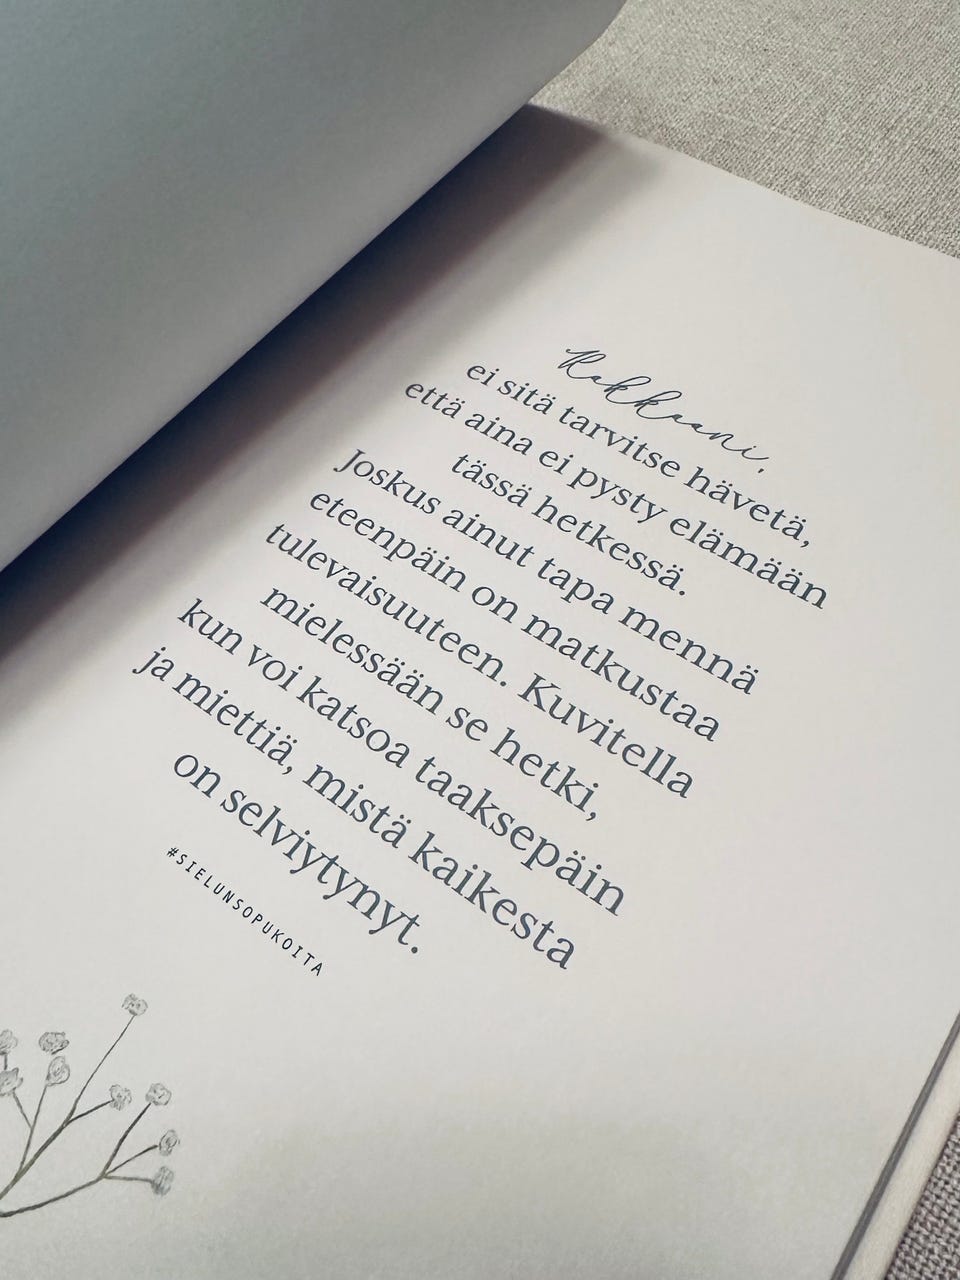 Rakkaani,
ei sitä tarvitse hävetä,
että aina ei pysty elämään
tässä hetkessä.
Joskus ainut tapa mennä
eteenpäin on matkustaa
tulevaisuuteen. Kuvitella
mielessään se hetki,
kun voi katsoa taaksepäin
ja miettiä, mistä kaikesta
on selviytynyt.
#SIELUNSOPUKOITA